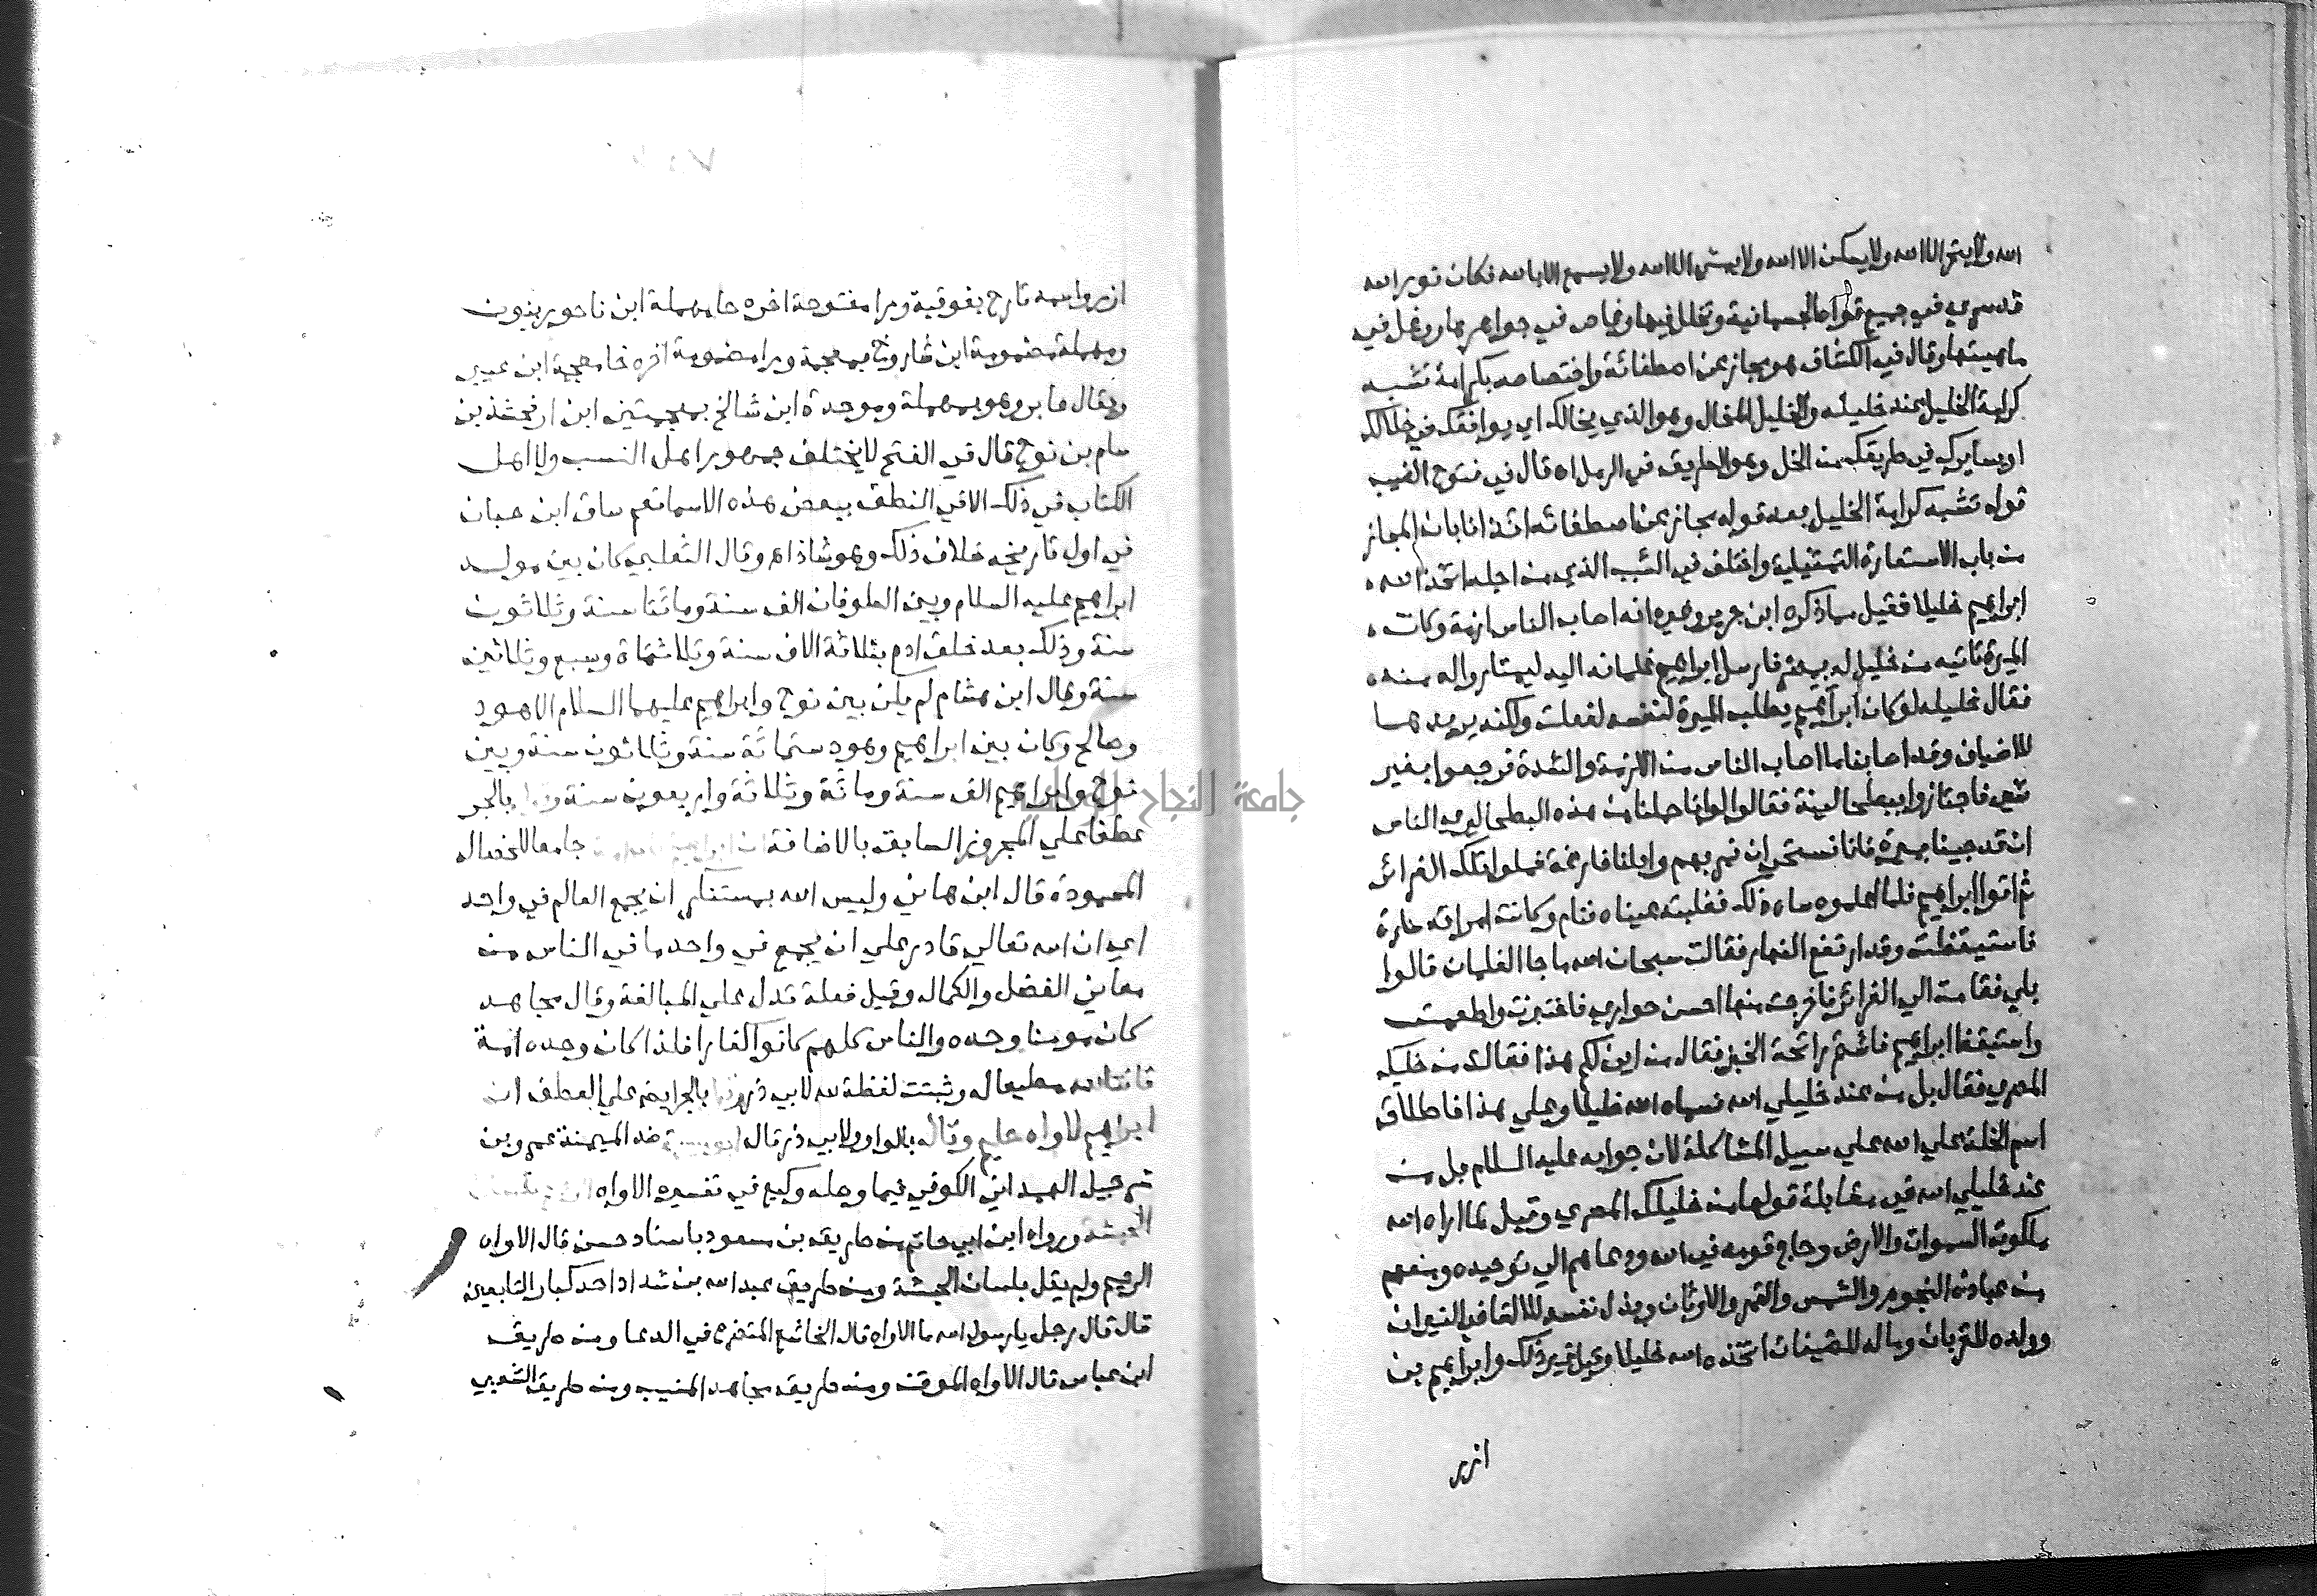 الله ولا يتحرك الا الله ولا يسكن الا الله ولا يمشي الا الله ولا يسمع الا بالله فكان نور الله
قد سري في جميع قواه الجسمانية وتخلل فيها وغاص في جواهرها ووغل في
ماهيتها وقال في الكشاف هو مجاز عن اصطفائه واختصاصه بكرامة تشبه
كرامة الخليل عند خليله والخليل المخال وهو الذي يخالك اي يوافقك في خلالك
او يسايرك في طريقك من الخل وهو الطريق في الرمل اه قال في فتوح الغيب
قوله تشبه كرامة الخليل بعد قوله مجاز عن اصطفائه ان المجاز
من باب الاستعارة التمثيلية واختلف في السبب الذي من اجله اتخذ الله
ابراهيم خليلا فقيل ما ذكره ابن جرير وغيره انه اصاب الناس ازمة وكانت
الميرة تاتيه من خليل له بمصر فارسل ابراهيم غلمانه اليه ليمتاروا له منه
فقال خليله لو كان ابراهيم يطلب الميرة لنفسه لفعلت ولكنه يريدها
للاضياف وقد اصابنا ما اصاب الناس من الازمة والشدة فرجعوا بغير
شي فاجتازوا ببطحا لينة فقالوا لوانا حملنا من هذه البطحا ليري الناس
انا قد جينا بميرة فانا نستحي ان نمر بهم وابلنا فارغة فملوا تلك الغرائر
ثم اتوا ابراهيم فلما اعلموه ساه ذلك فغلبته عيناه فنام وكانت امراته سارة
فاستيقظت وقد ارتفع النهار فقالت سبحان الله ما جا الغلمان قالوا
بلي فقامت الي الغرائر فاخرجت منها احسن حواري فاختبزت واطعمت
واستيقظ ابراهيم فاشتم رائحة الخبز فقال من اين لكم هذا فقالت من خليلك
المصري فقال بل من عند خليلي الله فسماه الله خليلا وعلي هذا فاطلاق
اسم الخلة علي الله علي سبيل المشاكلة لان جوابه عليه السلام بل من
عند خليلي الله في مقابلة قولها من خليلك المصري وقيل لما اراه الله
ملكوت السموات والارض وحاج قومه في الله ودعاهم الي توحيده ومنعهم
من عبادة النجوم والشمس والقمر والاوثان وبذل نفسه للالقا في النيران
وولده للقربان وماله للضيفان اتخذه الله خليلا وقيل غير ذلك وابراهيم بن
ازر
ازر واسمه تارح بفوقية ورا مفتوحة اخره حا مهملة ابن ناحور بنون
ومهملة مضمومة ابن شاروخ بمعجمة ورا مضمومة اخره خا معجمة ابن عيبر
ويقال عابر وهو بمهملة وموحدة ابن شالخ بمعجمتين ابن ارفخشذ بن
سام بن نوح قال في الفتح لا يختلف جمهور اهل النسب ولا اهل
الكتاب في ذلك الا في النطق ببعض هذه الاسما نعم ساق ابن حبان
في اول تاريخه خلاف ذلك وهو شاذ اه وقال الثعلبي كان بين مولد
ابراهيم عليه السلام وبين الطوفان الف سنة ومائتا سنة وثلاثون
سنة وذلك بعد خلق ادم بثلاثة الاف سنة وثلاثمائة وسبع وثلاثين
سنة وقال ابن هشام لم يكن بين نوح وابراهيم عليهما السلام الا هود
وصالح وكان بين ابراهيم وهود ستمائة سنة وثلاثون سنة وبين
نوح وابراهيم الف سنة ومائة وثلاثة واربعون سنة بالجر
عطفا علي المجرور السابق بالاضافة جامعا للخصال
المحمودة قال ابن هاني وليس الله بمستنكر ان يجمع العالم في واحد
اي ان الله تعالي قادر علي ان يجمع في واحد ما في الناس من
معاني الفضل والكمال وقيل فعلة تدل علي المبالغة وقال مجاهد
كان مومنا وحده والناس كلهم كانوا كفارا فلذا كان وحده امة
قانتا لله مطيعا له وثبتت لفظة لله لابي ذر بالجر ايضا علي العطف ان
ابراهيم لاواه حليم وقال بالواو ولابي ذر قال ضد الميمنة عمرو بن
شرحبيل الهمداني الكوفي فيما وصله وكيع في تفسيره الاواه
الحبشة ورواه ابن ابي حاتم من طريق بن مسعود باسناد حسن قال الاواه
الرحيم ولم يقل بلسان الحبشة ومن طريق عبد الله بن شداد احد كبار التابعين
قال قال رجل يا رسول الله ما الاواه قال الخاشع المتضرع في الدعا ومن طريق
ابن عباس قال الاواه الموقن ومن طريق مجاهد المنيب ومن طريق الشعبي
جامعة النجاح الوطنية